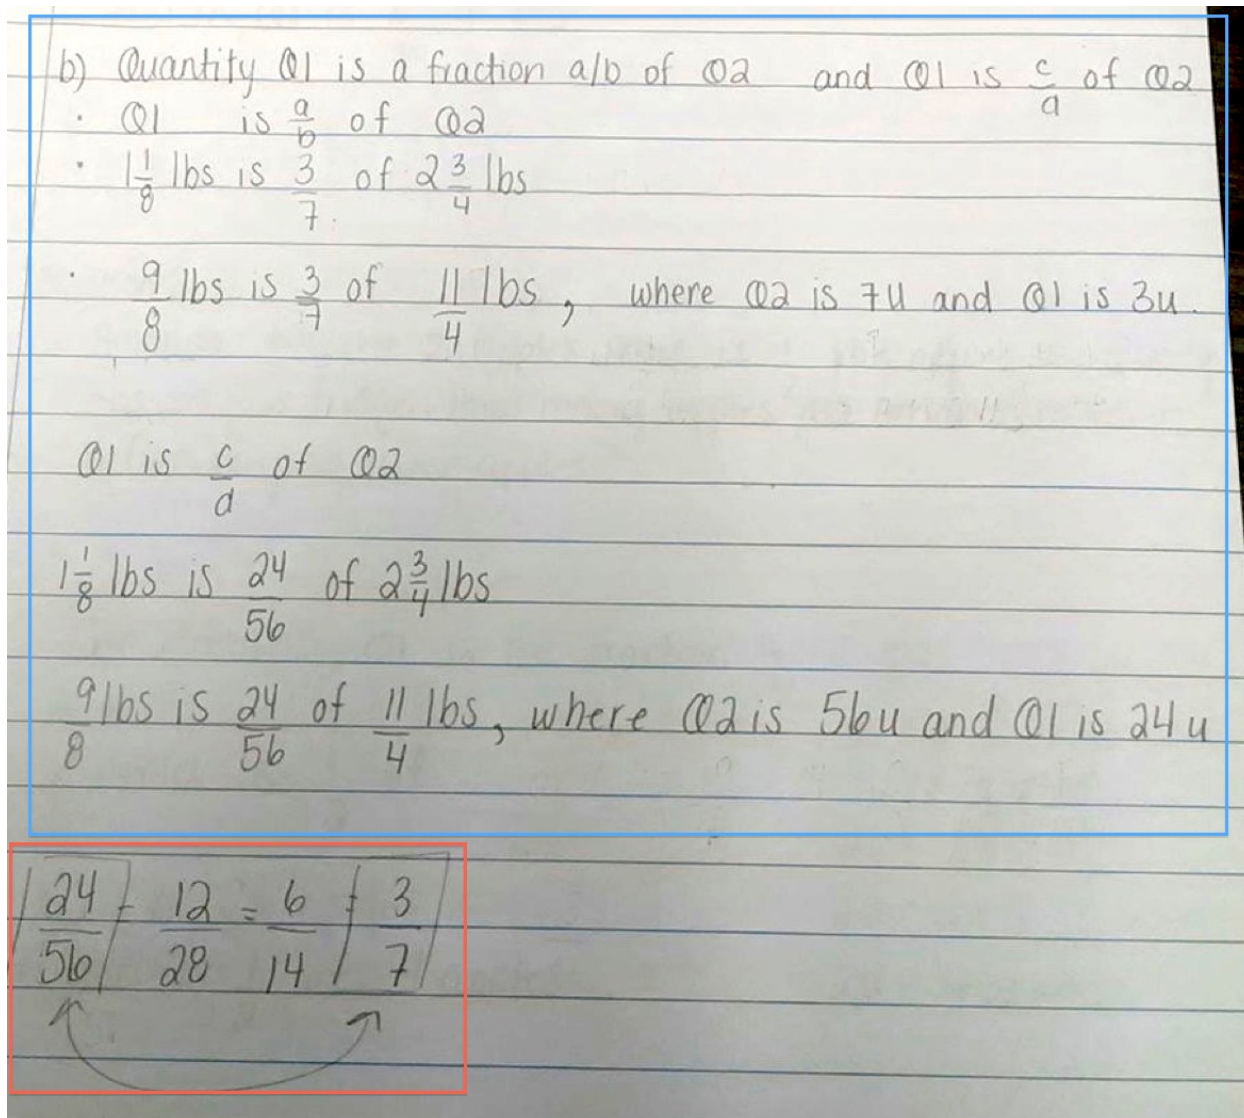 b) Quantity Q1 is a fraction a/b of Q2 and Q1 is c/d of Q2
· Q1 is a/b of Q2
· 1 1/8 lbs is 3/7 of 2 3/4 lbs
· 9/8 lbs is 3/7 of 11/4 lbs, where Q2 is 7u and Q1 is 3u.
Q1 is c/d of Q2
1 1/8 lbs is 24/56 of 2 3/4 lbs
9/8 lbs is 24/56 of 11/4 lbs, where Q2 is 56u and Q1 is 24u
24/56 = 12/28 = 6/14 = 3/7